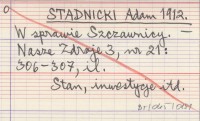 STADNICKI Adam 1912.
W sprawie Szczawnicy. —
Nasze Zdroje 3, nr 21:
306-307, il.
Stan, inwestycje itd.